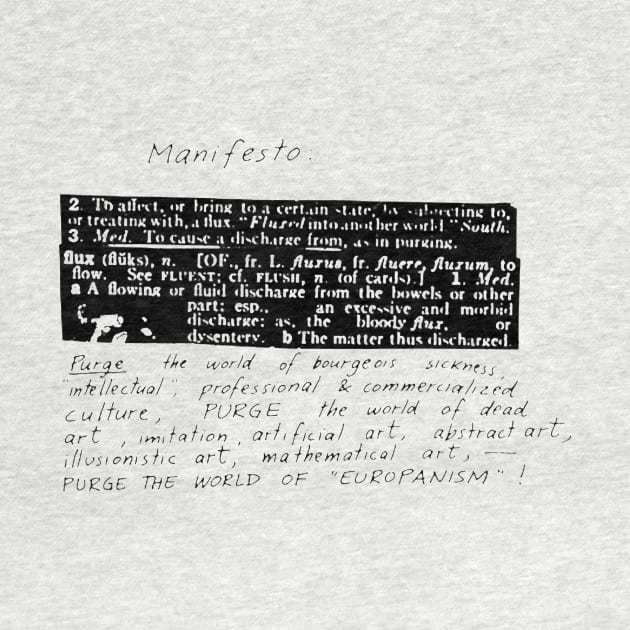 Manifesto:
2. To affect, or bring to a certain state, by subjecting to,
or treating with, a flux. "Fluxed into another world." South.
3. Med. To cause a discharge from, as in purging.
flux (flŭks), n. [OF., fr. L. fluxus, fr. fluere, fluxum, to
flow. See FLUENT; cf. FLUSH, n. (of cards).] 1. Med.
a A flowing or fluid discharge from the bowels or other
part; esp., an excessive and morbid
discharge; as, the bloody flux, or
dysentery. b The matter thus discharged.
Purge the world of bourgeois sickness,
"intellectual", professional & commercialized
culture, PURGE the world of dead
art, imitation, artificial art, abstract art,
illusionistic art, mathematical art, —
PURGE THE WORLD OF "EUROPANISM"!